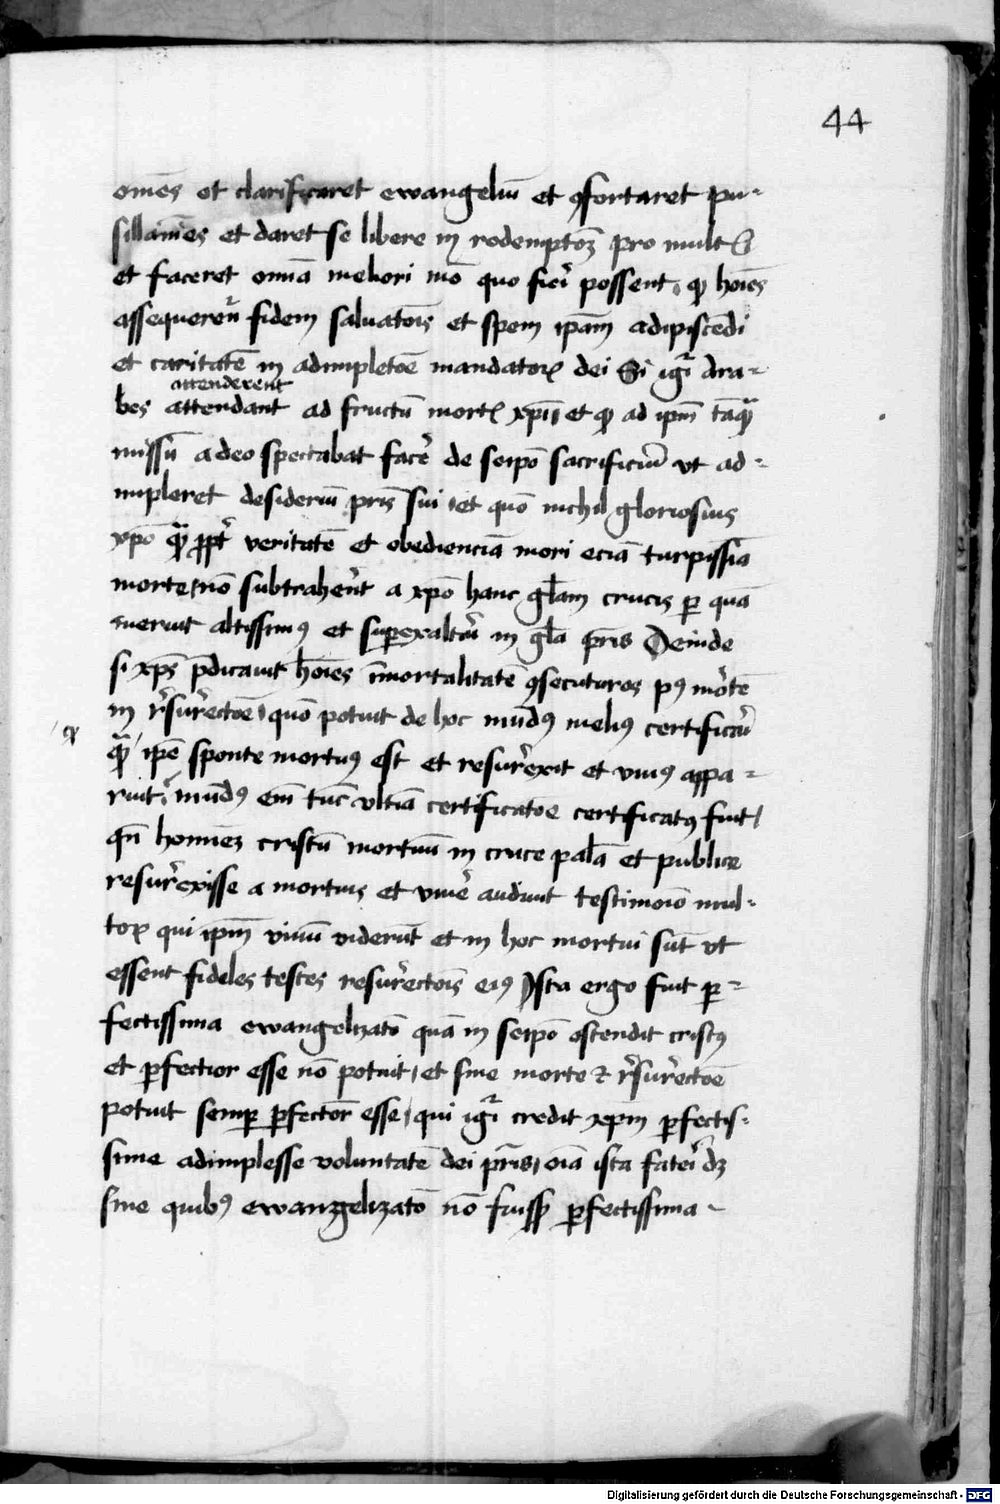 44
om̄es et clarificaret ewangeliū et ꝯfortaret pu-
sillāīes et daret se libere in redemptōꝫ pro mult
et faceret om̄ia meliori mō quo fieri possent, ꝙ hoīes
assequerent̄ fidem saluatoīs et spem ip̄am adipiscēdi
et caritatē in adimpletōe mandatoꝝ dei Si igr̄ Ara-
attenderent
bes attendant ad fructū mortꝭ xp̄i et ꝙ ad ip̄m tāqᷓ
missū a deo spectabat facē de seip̄o sacrificiū vt ad-
impleret desideriū pr̄is sui, et quō nichil gloriosius
xp̄o qᷓ ꝓpt̄ veritatē et obedienciā mori eciā turpissīa
morte, nō subtraherēt a xp̄o hanc gl̄iam crucis ꝑ quā
meruit altissimꝰ et superexaltari in gl̄a pr̄is Deinde
si xp̄s p̄dicauit hoīes īmortalitatē ꝯsecuturos pꝰ mortē
in r̄surrectōe, quō potuit de hoc mūdꝰ meliꝰ certificari
qᷓ ip̄e sponte mortuꝰ est et resurrexit et viuꝰ appa-
ruit, mūdꝰ em̄ tūc vltīa certificatōe certificatꝰ fuit,
qn̄ hominēꝫ cristū mortuū in cruce palā et publice
resurrexisse a mortuis et viuē audiuit testimonio mul-
toꝝ qui ip̄m viuū viderūt et in hoc mortui sūt vt
essent fideles testes resurrectōis eiꝰ Ista ergo fuit ꝑ-
fectissima ewangelizatō quā in seip̄o ostendit cristꝰ
et ꝑfectior esse nō potuit, et sine morte ⁊ r̄surrectōe
potuit semꝑ ꝑfectior esse, qui igr̄ credit xp̄m ꝑfectis-
sime adimplesse voluntatē dei pr̄is, oīa ista fateri dꝫ
sine quibꝰ ewangelizatō nō fuissꝫ ꝑfectissima -
Digitalisierung gefördert durch die Deutsche Forschungsgemeinschaft - DFG